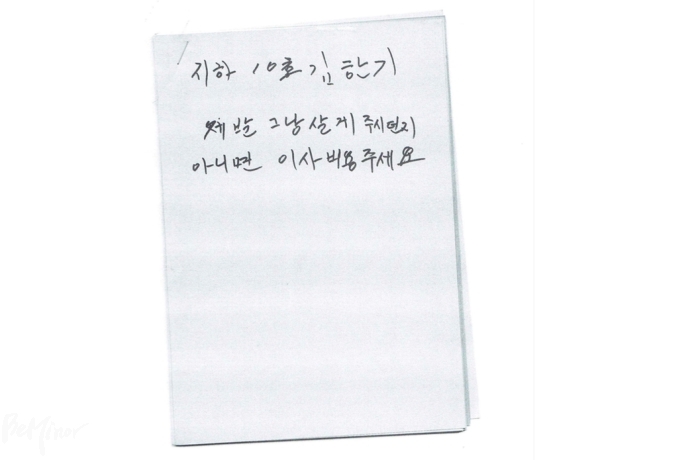 지하 10호 김한기
제발 그냥 살게 주시던지
아니면 이사비용주세요
BeMinor